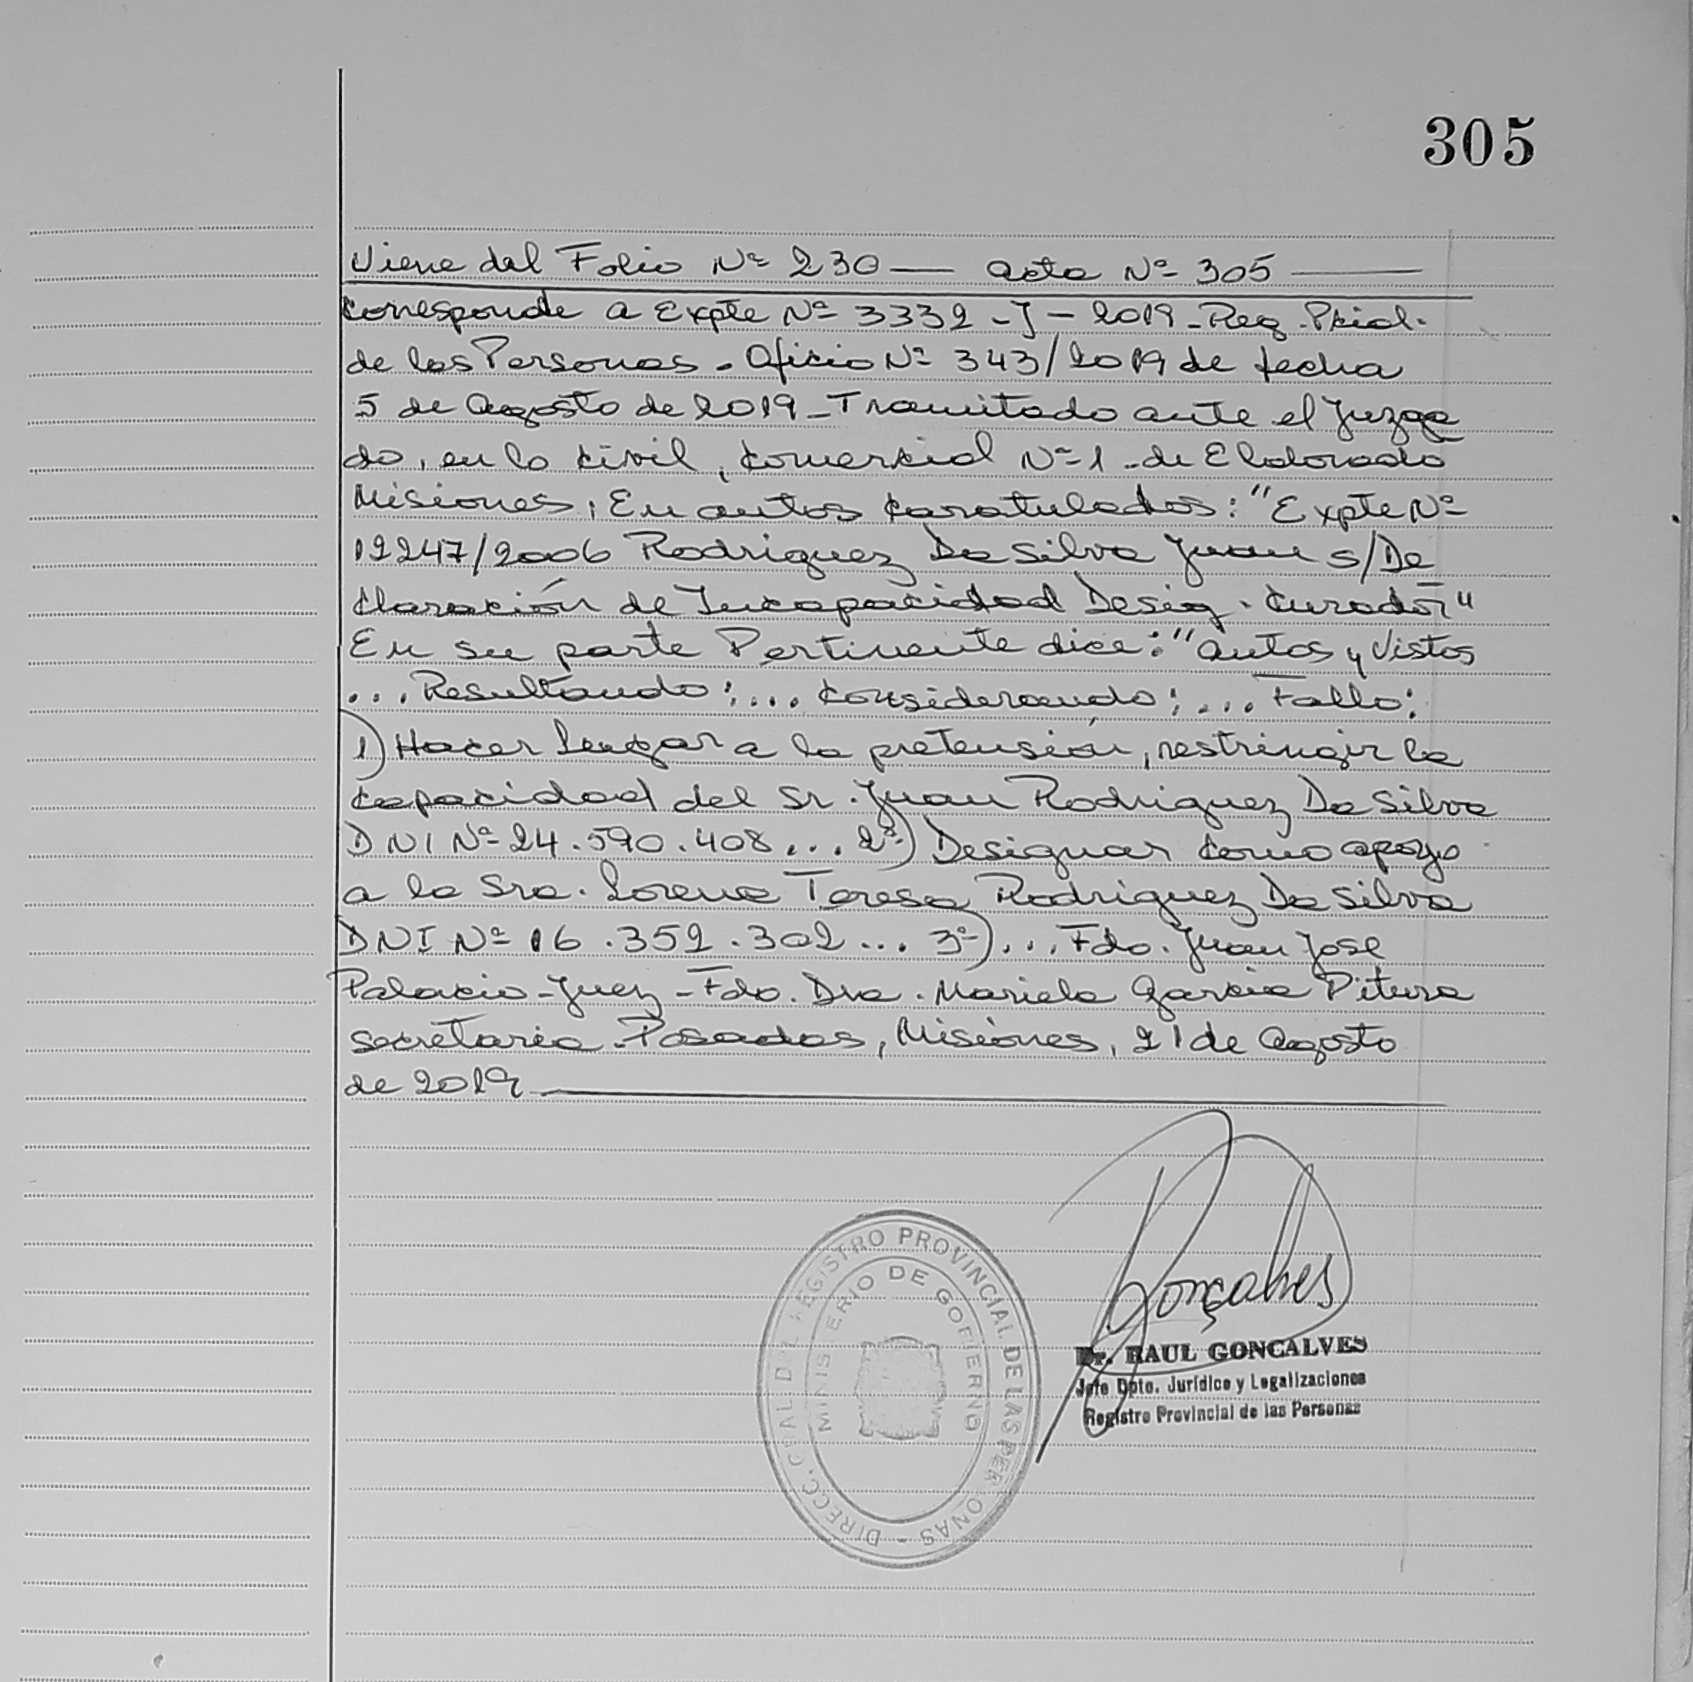 305
Viene del Folio Nº 230 — acta Nº 305 —
Corresponde a Expte Nº 3332-J-2019-Reg. Pcial.
de las Personas. Oficio Nº 343/2019 de fecha
5 de Agosto de 2019-Tramitado ante el Juzga
do, en lo Civil, Comercial Nº 1 de Eldorado
Misiones, En autos caratulados: "Expte Nº
12247/2006 Rodriguez Da Silva Juan s/De
claración de Incapacidad Desig. Curador"
En su parte Pertinente dice: "autos y Vistos
... Resultando:... Considerando:... Fallo:
1) Hacer lugar a la pretensión, restringir la
capacidad del Sr. Juan Rodriguez Da Silva
DNI Nº 24.590.408... 2º) Designar como apoyo
a la Sra. Lorena Teresa Rodriguez Da Silva
DNI Nº 16.352.302... 3º)... Fdo. Juan Jose
Palacio-Juez-Fdo. Dra. Mariela Garcia Pitura
secretaria-Posadas, Misiones, 21 de Agosto
de 2019
DIRECC. GRAL. DEL REGISTRO PROVINCIAL DE LAS PERSONAS -
MINISTERIO DE GOBIERNO
Gonçalves
Dr. RAUL GONCALVES
Jefe Dpto. Jurídico y Legalizaciones
Registro Provincial de las Personas